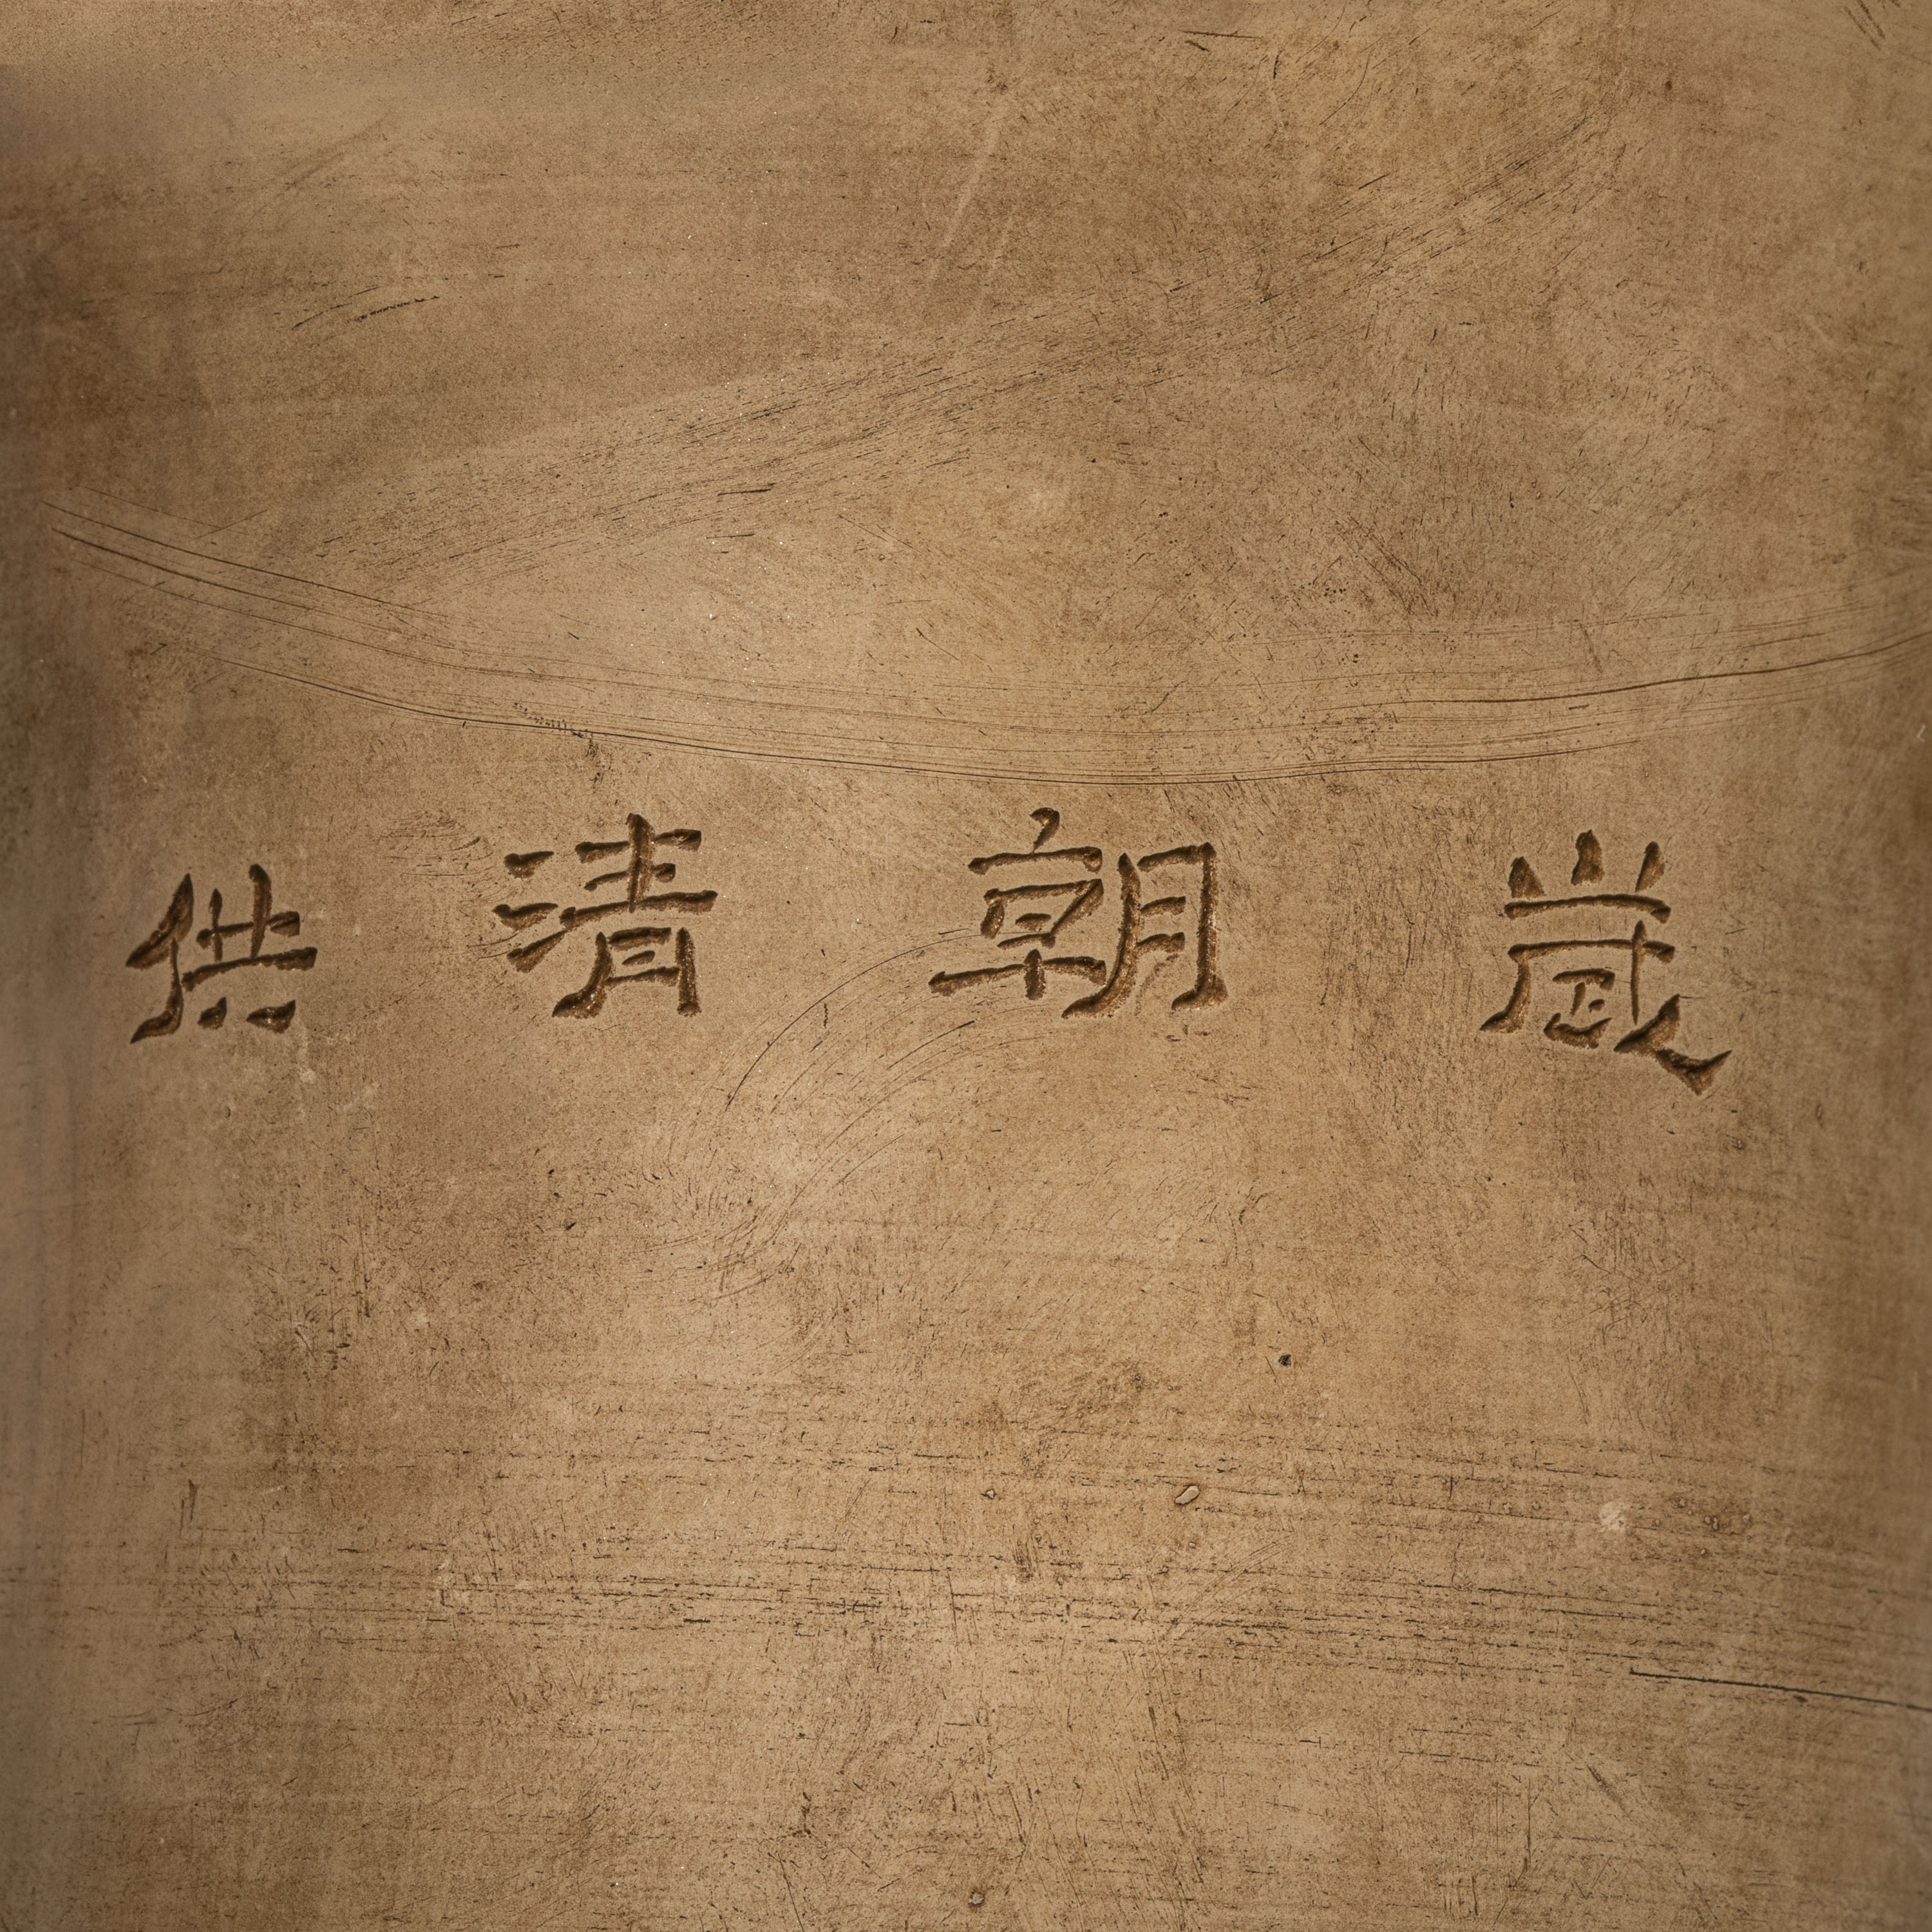 歲朝清供